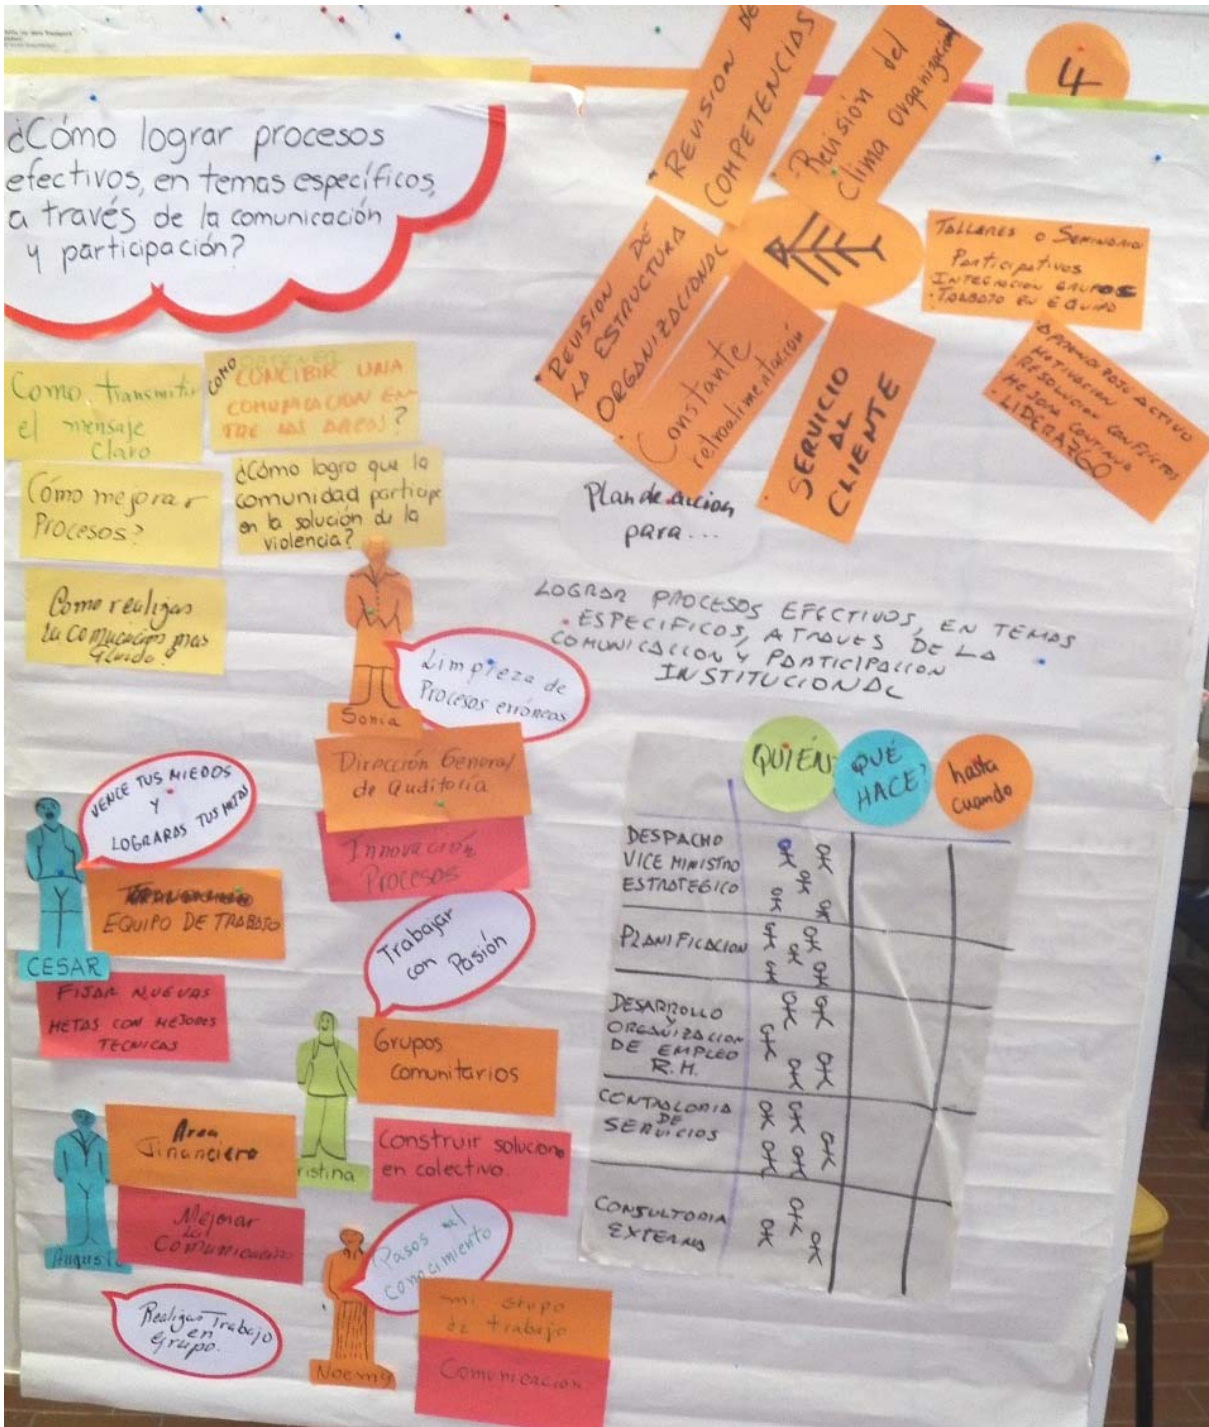 4
¿Cómo lograr procesos
efectivos, en temas específicos,
a través de la comunicación
y participación?
REVISION DE
COMPETENCIAS
Revisión del
Clima Organizacional
REVISION DE
LA ESTRUCTURA
ORGANIZACIONAL
Constante
retroalimentación
SERVICIO
AL
CLIENTE
TALLERES O SEMINARIO
Participativos
INTEGRACION GRUPOS
TRABAJO EN EQUIPO
APRENDIZAJE ACTIVO
MOTIVACION
RESOLUCION CONFLICTOS
MEJORA CONTINUA
LIDERAZGO
Como transmitir
el mensaje
Claro
COMO
CONCIBIR UNA
COMUNICACION EN
TRE LAS AREAS?
Cómo mejorar
Procesos?
¿Cómo logro que la
comunidad participe
en la solución de la
violencia?
Como realizas
la comucación mas
fluido?
Plan de accion
para...
LOGRAR PROCESOS EFECTIVOS, EN TEMAS
ESPECIFICOS, A TRAVES DE LA
COMUNICACION Y PARTICIPACION
INSTITUCIONAL
Limpieza de
Procesos erróneos
Sonia
Dirección General
de Auditoría
Innovación
Procesos
VENCE TUS MIEDOS
Y
LOGRARAS TUS METAS
EQUIPO DE TRABAJO
CESAR
FIJAR NUEVAS
METAS CON MEJORES
TECNICAS
Trabajar
con Pasión
Grupos
comunitarios
ristina
Construir solucione
en colectivo.
Area
Financiero
Mejorar
la
Comunicación
Augusto
Realizar Trabajo
en
grupo.
Pasos al
conocimiento
Noemy
mi grupo
de trabajo
Comunicación
QUIÉN
QUÉ
HACE?
hasta
cuando
DESPACHO
VICE MINISTRO
ESTRATEGICO
OK OK
OK
OK OK
PLANIFICACION
OK OK
OK
OK OK
DESARROLLO
Y
ORGANIZACION
DE EMPLEO
R.H.
OK OK
OK
OK OK
CONTRALORIA
DE
SERVICIOS
OK OK
OK
OK OK
OK
CONSULTORIA
EXTERNA
OK
OK OK